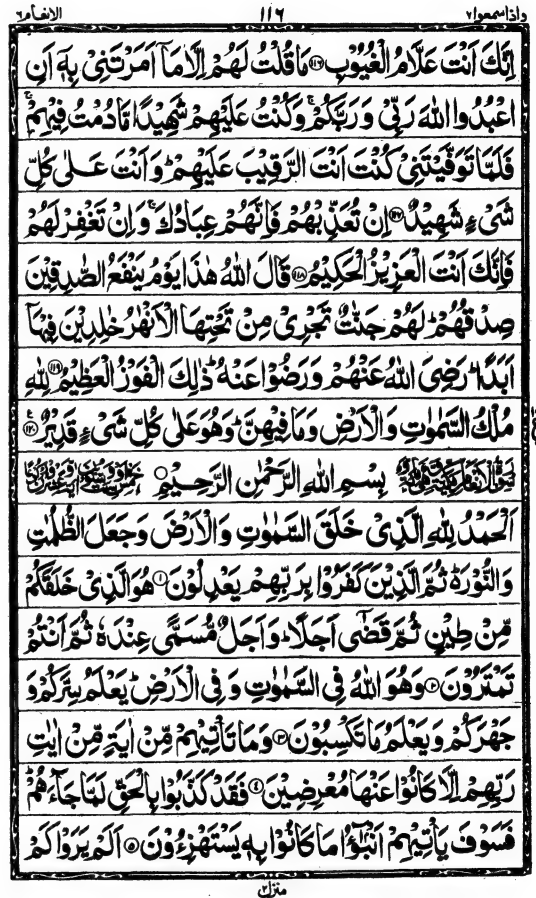 واذاسمعوا۷ ۱۱۶ الانعام۶
اِنَّكَ اَنْتَ عَلَّامُ الْغُيُوْبِ ۝۱۱۶ مَا قُلْتُ لَهُمْ اِلَّا مَاۤ اَمَرْتَنِىْ بِهٖۤ اَنِ
اعْبُدُوا اللّٰهَ رَبِّىْ وَرَبَّكُمْ ۚ وَكُنْتُ عَلَيْهِمْ شَهِيْدًا مَّا دُمْتُ فِيْهِمْ ۚ
فَلَمَّا تَوَفَّيْتَنِىْ كُنْتَ اَنْتَ الرَّقِيْبَ عَلَيْهِمْ ؕ وَاَنْتَ عَلٰى كُلِّ
شَىْءٍ شَهِيْدٌ ۝۱۱۷ اِنْ تُعَذِّبْهُمْ فَاِنَّهُمْ عِبَادُكَ ۚ وَاِنْ تَغْفِرْ لَهُمْ
فَاِنَّكَ اَنْتَ الْعَزِيْزُ الْحَكِيْمُ ۝۱۱۸ قَالَ اللّٰهُ هٰذَا يَوْمُ يَنْفَعُ الصّٰدِقِيْنَ
صِدْقُهُمْ ؕ لَهُمْ جَنّٰتٌ تَجْرِىْ مِنْ تَحْتِهَا الْاَنْهٰرُ خٰلِدِيْنَ فِيْهَاۤ
اَبَدًا ؕ رَضِىَ اللّٰهُ عَنْهُمْ وَرَضُوْا عَنْهُ ؕ ذٰلِكَ الْفَوْزُ الْعَظِيْمُ ۝۱۱۹ لِلّٰهِ
مُلْكُ السَّمٰوٰتِ وَالْاَرْضِ وَمَا فِيْهِنَّ ؕ وَهُوَ عَلٰى كُلِّ شَىْءٍ قَدِيْرٌ ۝۱۲۰
بِسْمِ اللّٰهِ الرَّحْمٰنِ الرَّحِيْمِ ۝
اَلْحَمْدُ لِلّٰهِ الَّذِىْ خَلَقَ السَّمٰوٰتِ وَالْاَرْضَ وَجَعَلَ الظُّلُمٰتِ
وَالنُّوْرَ ؕ ثُمَّ الَّذِيْنَ كَفَرُوْا بِرَبِّهِمْ يَعْدِلُوْنَ ۝۱ هُوَ الَّذِىْ خَلَقَكُمْ
مِّنْ طِيْنٍ ثُمَّ قَضٰۤى اَجَلًا ؕ وَاَجَلٌ مُّسَمًّى عِنْدَهٗ ثُمَّ اَنْتُمْ
تَمْتَرُوْنَ ۝۲ وَهُوَ اللّٰهُ فِى السَّمٰوٰتِ وَفِى الْاَرْضِ ؕ يَعْلَمُ سِرَّكُمْ وَ
جَهْرَكُمْ وَيَعْلَمُ مَا تَكْسِبُوْنَ ۝۳ وَمَا تَاْتِيْهِمْ مِّنْ اٰيَةٍ مِّنْ اٰيٰتِ
رَبِّهِمْ اِلَّا كَانُوْا عَنْهَا مُعْرِضِيْنَ ۝۴ فَقَدْ كَذَّبُوْا بِالْحَقِّ لَمَّا جَآءَهُمْ ؕ
فَسَوْفَ يَاْتِيْهِمْ اَنْۢبٰٓؤُا مَا كَانُوْا بِهٖ يَسْتَهْزِءُوْنَ ۝۵ اَلَمْ يَرَوْا كَمْ
منزل۲